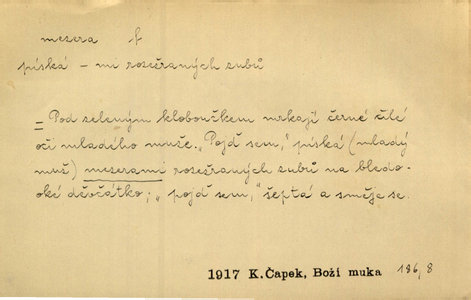 mezera f
píská – mi rozežraných zubů
= Pod zeleným kloboučkem mrkají černé čilé
oči mladého muže. „Pojď sem," píská (mladý
muž) mezerami rozežraných zubů na bledo-
oké děvčátko; „pojď sem," šeptá a směje se.
1917 K.Čapek, Boží muka 186,8